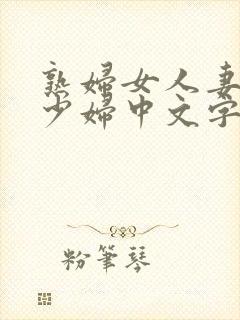 熟婦女人妻
少婦中文字
粉筆琴